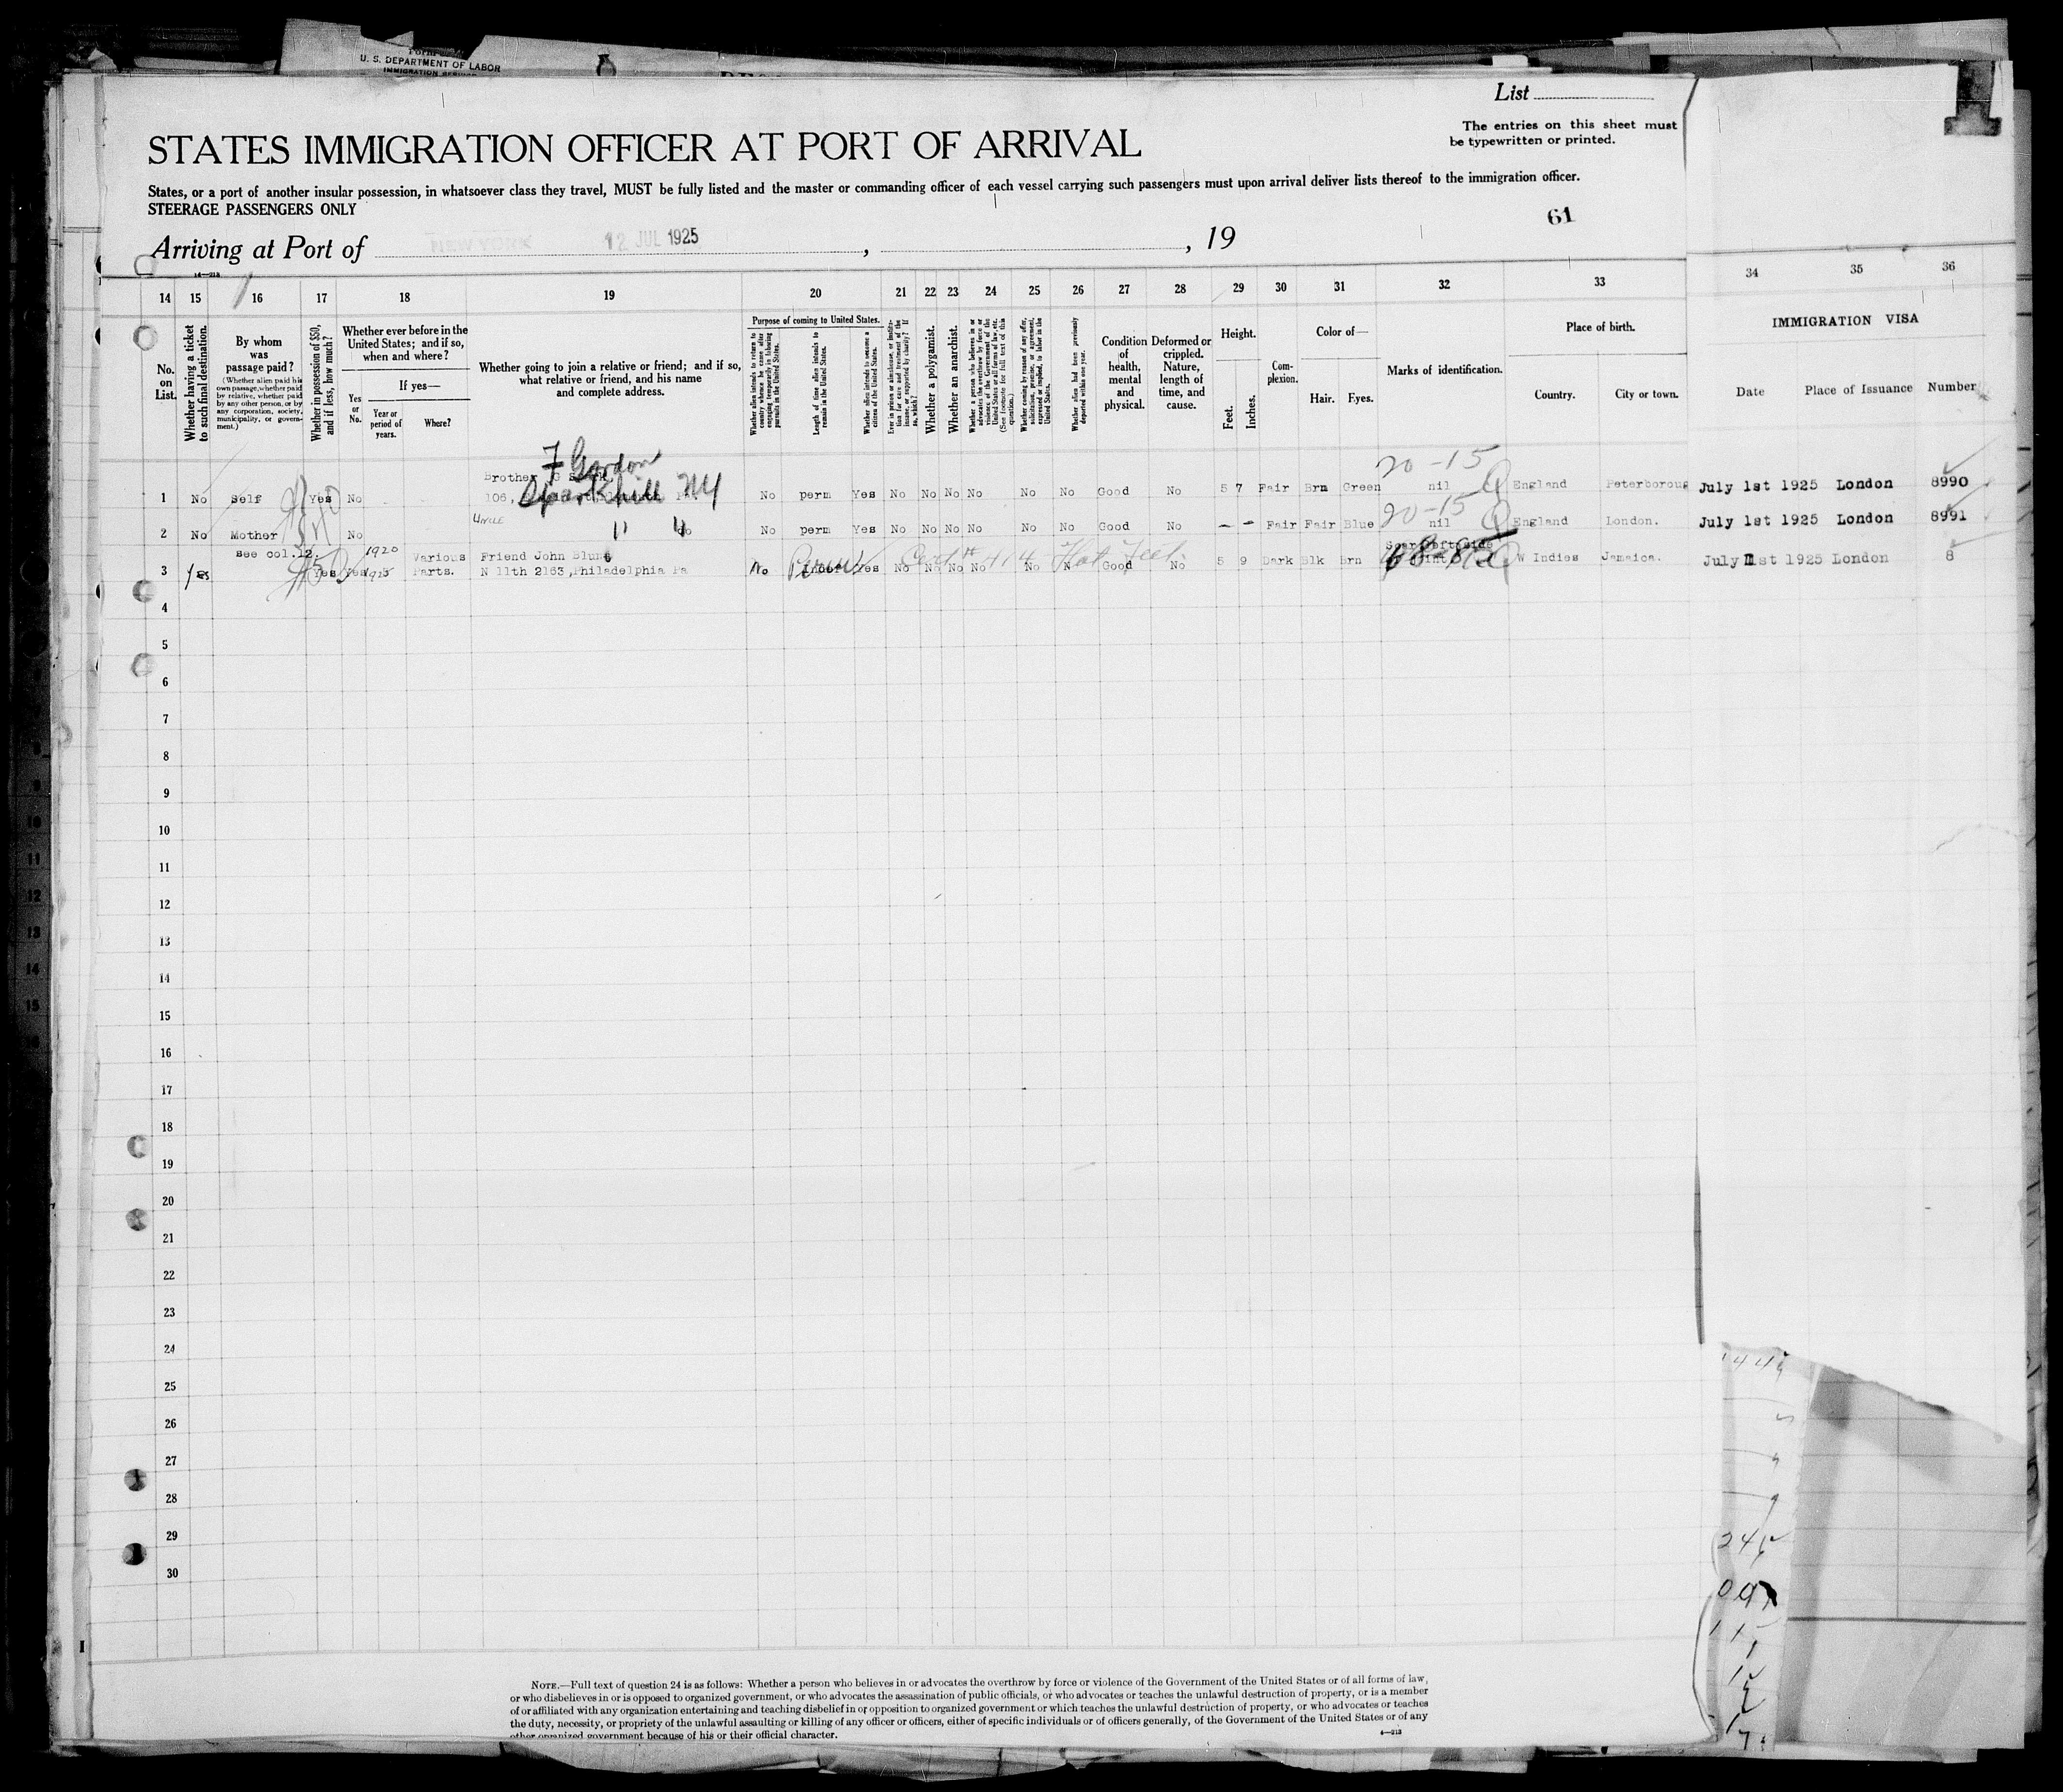 U. S. DEPARTMENT OF LABOR
IMMIGRATION SERVICE
List
The entries on this sheet must
be typewritten or printed.
STATES IMMIGRATION OFFICER AT PORT OF ARRIVAL
States, or a port of another insular possession, in whatsoever class they travel, MUST be fully listed and the master or commanding officer of each vessel carrying such passengers must upon arrival deliver lists thereof to the immigration officer.
STEERAGE PASSENGERS ONLY
61
Arriving at Port of NEW YORK 12 JUL 1925, , 19
14 15 16 17 18 19 20 21 22 23 24 25 26 27 28 29 30 31 32 33 34 35 36
No. on List.
Whether having a ticket to such final destination.
By whom was passage paid?
(Whether alien paid his own passage, whether paid by relative, whether paid by any other person, or by any corporation, society, municipality, or government.)
Whether in possession of $50, and if less, how much?
Whether ever before in the United States; and if so, when and where?
Yes or No.
If yes—
Year or period of years.
Where?
Whether going to join a relative or friend; and if so, what relative or friend, and his name and complete address.
Purpose of coming to United States.
Whether alien intends to return to country whence he came after engaging temporarily in laboring pursuits in the United States.
Length of time alien intends to remain in the United States.
Whether alien intends to become a citizen of the United States.
Ever in prison or almshouse, or institution for care and treatment of the insane, or supported by charity? If so, which?
Whether a polygamist.
Whether an anarchist.
Whether a person who believes in or advocates the overthrow by force or violence of the Government of the United States or all forms of law, etc. (See footnote for full text of this question.)
Whether coming by reason of any offer, solicitation, promise, or agreement, expressed or implied, to labor in the United States.
Whether alien had been previously deported within one year.
Condition of health, mental and physical.
Deformed or crippled. Nature, length of time, and cause.
Height.
Feet. Inches.
Complexion.
Color of—
Hair. Eyes.
Marks of identification.
Place of birth.
Country. City or town.
IMMIGRATION VISA
Date Place of Issuance Number
F Gordon
Brother
Sparkhill NY
20-15
1 No Self Yes No 106, No perm Yes No No No No No No Good No 5 7 Fair Brn Green nil England Peterboroug July 1st 1925 London 8990
20-15
2 No Mother No Uncle " No perm Yes No No No No No No Good No — — Fair Fair Blue nil England London. July 1st 1925 London 8991
see col.12. 1920 Various Friend John Blunt
3 Yes Yes Yes 1925 Parts. N 11th 2163, Philadelphia Pa No Perm Yes No No No No No No Flat Feet Good No 5 9 Dark Blk Brn W Indies Jamaica. July 1st 1925 London 8
4
5
6
7
8
9
10
11
12
13
14
15
16
17
18
19
20
21
22
23
24
25
26
27
28
29
30
NOTE.—Full text of question 24 is as follows: Whether a person who believes in or advocates the overthrow by force or violence of the Government of the United States or of all forms of law,
or who disbelieves in or is opposed to organized government, or who advocates the assassination of public officials, or who advocates or teaches the unlawful destruction of property, or is a member
of or affiliated with any organization entertaining and teaching disbelief in or opposition to organized government or which teaches the unlawful destruction of property, or who advocates or teaches
the duty, necessity, or propriety of the unlawful assaulting or killing of any officer or officers, either of specific individuals or of officers generally, of the Government of the United States or of any
other organized government because of his or their official character.